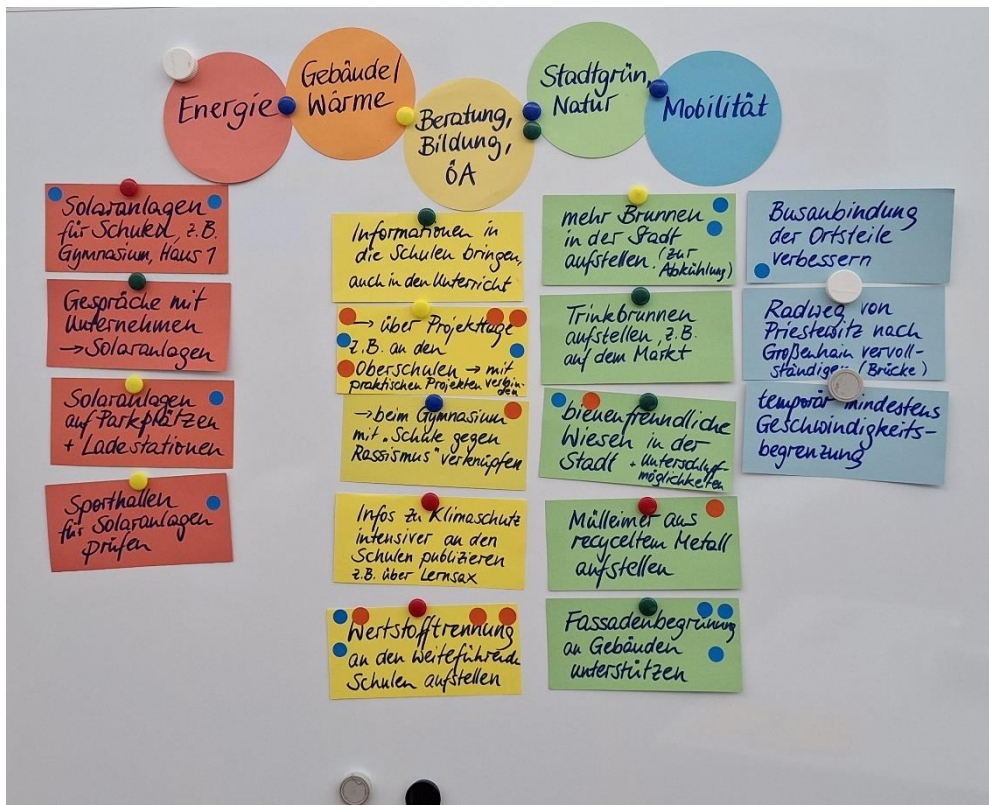 Energie
Gebäude/
Wärme
Beratung,
Bildung,
ÖA
Stadtgrün,
Natur
Mobilität
Solaranlagen
für Schulen, z.B.
Gymnasium, Haus 1
Gespräche mit
Unternehmen
→ Solaranlagen
Solaranlagen
auf Parkplätzen
+ Ladestationen
Sporthallen
für Solaranlagen
prüfen
Informationen in
die Schulen bringen,
auch in den Unterricht
→ über Projekttage
z.B. an den
Oberschulen → mit
praktischen Projekten verbin-
den
→ beim Gymnasium
mit "Schule gegen
Rassismus" verknüpfen
Infos zu Klimaschutz
intensiver an den
Schulen publizieren
z.B. über Lernsax
Wertstofftrennung
an den weiteführende
Schulen aufstellen
mehr Brunnen
in der Stadt
aufstellen. (zur
Abkühlung)
Trinkbrunnen
aufstellen, z.B.
auf dem Markt
bienenfreundliche
Wiesen in der
Stadt + Unterschlupf-
möglichkeiten
Mülleimer aus
recyceltem Metall
aufstellen
Fassadenbegrünung
an Gebäuden
unterstützen
Busanbindung
der Ortsteile
verbessern
Radweg von
Priestewitz nach
Großenhain vervoll-
ständigen (Brücke)
temporär mindestens
Geschwindigkeits-
begrenzung